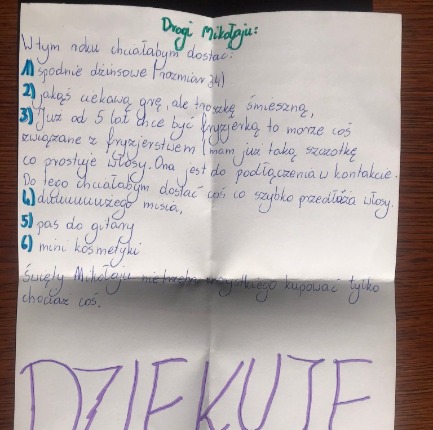 Drogi Mikołaju:
W tym roku chciałabym dostać:
1) spodnie dżinsowe (rozmiar 34)
2) jakąś ciekawą grę, ale troszkę śmieszną,
3) Już od 5 lat chce być fryzjerką to morze coś
związane z fryzjerstwem (mam już taką szczotkę
co prostuje włosy. Ona jest do podłączenia w kontakcie.
Do tego chciałabym dostać coś co szybko przedłuża włosy.
4) dużuuuuuzego misia,
5) pas do gitary
6) mini kosmetyki
Święty Mikołaju nie wszystkiego kupować tylko
chociaż coś.
DZIĘKUJE